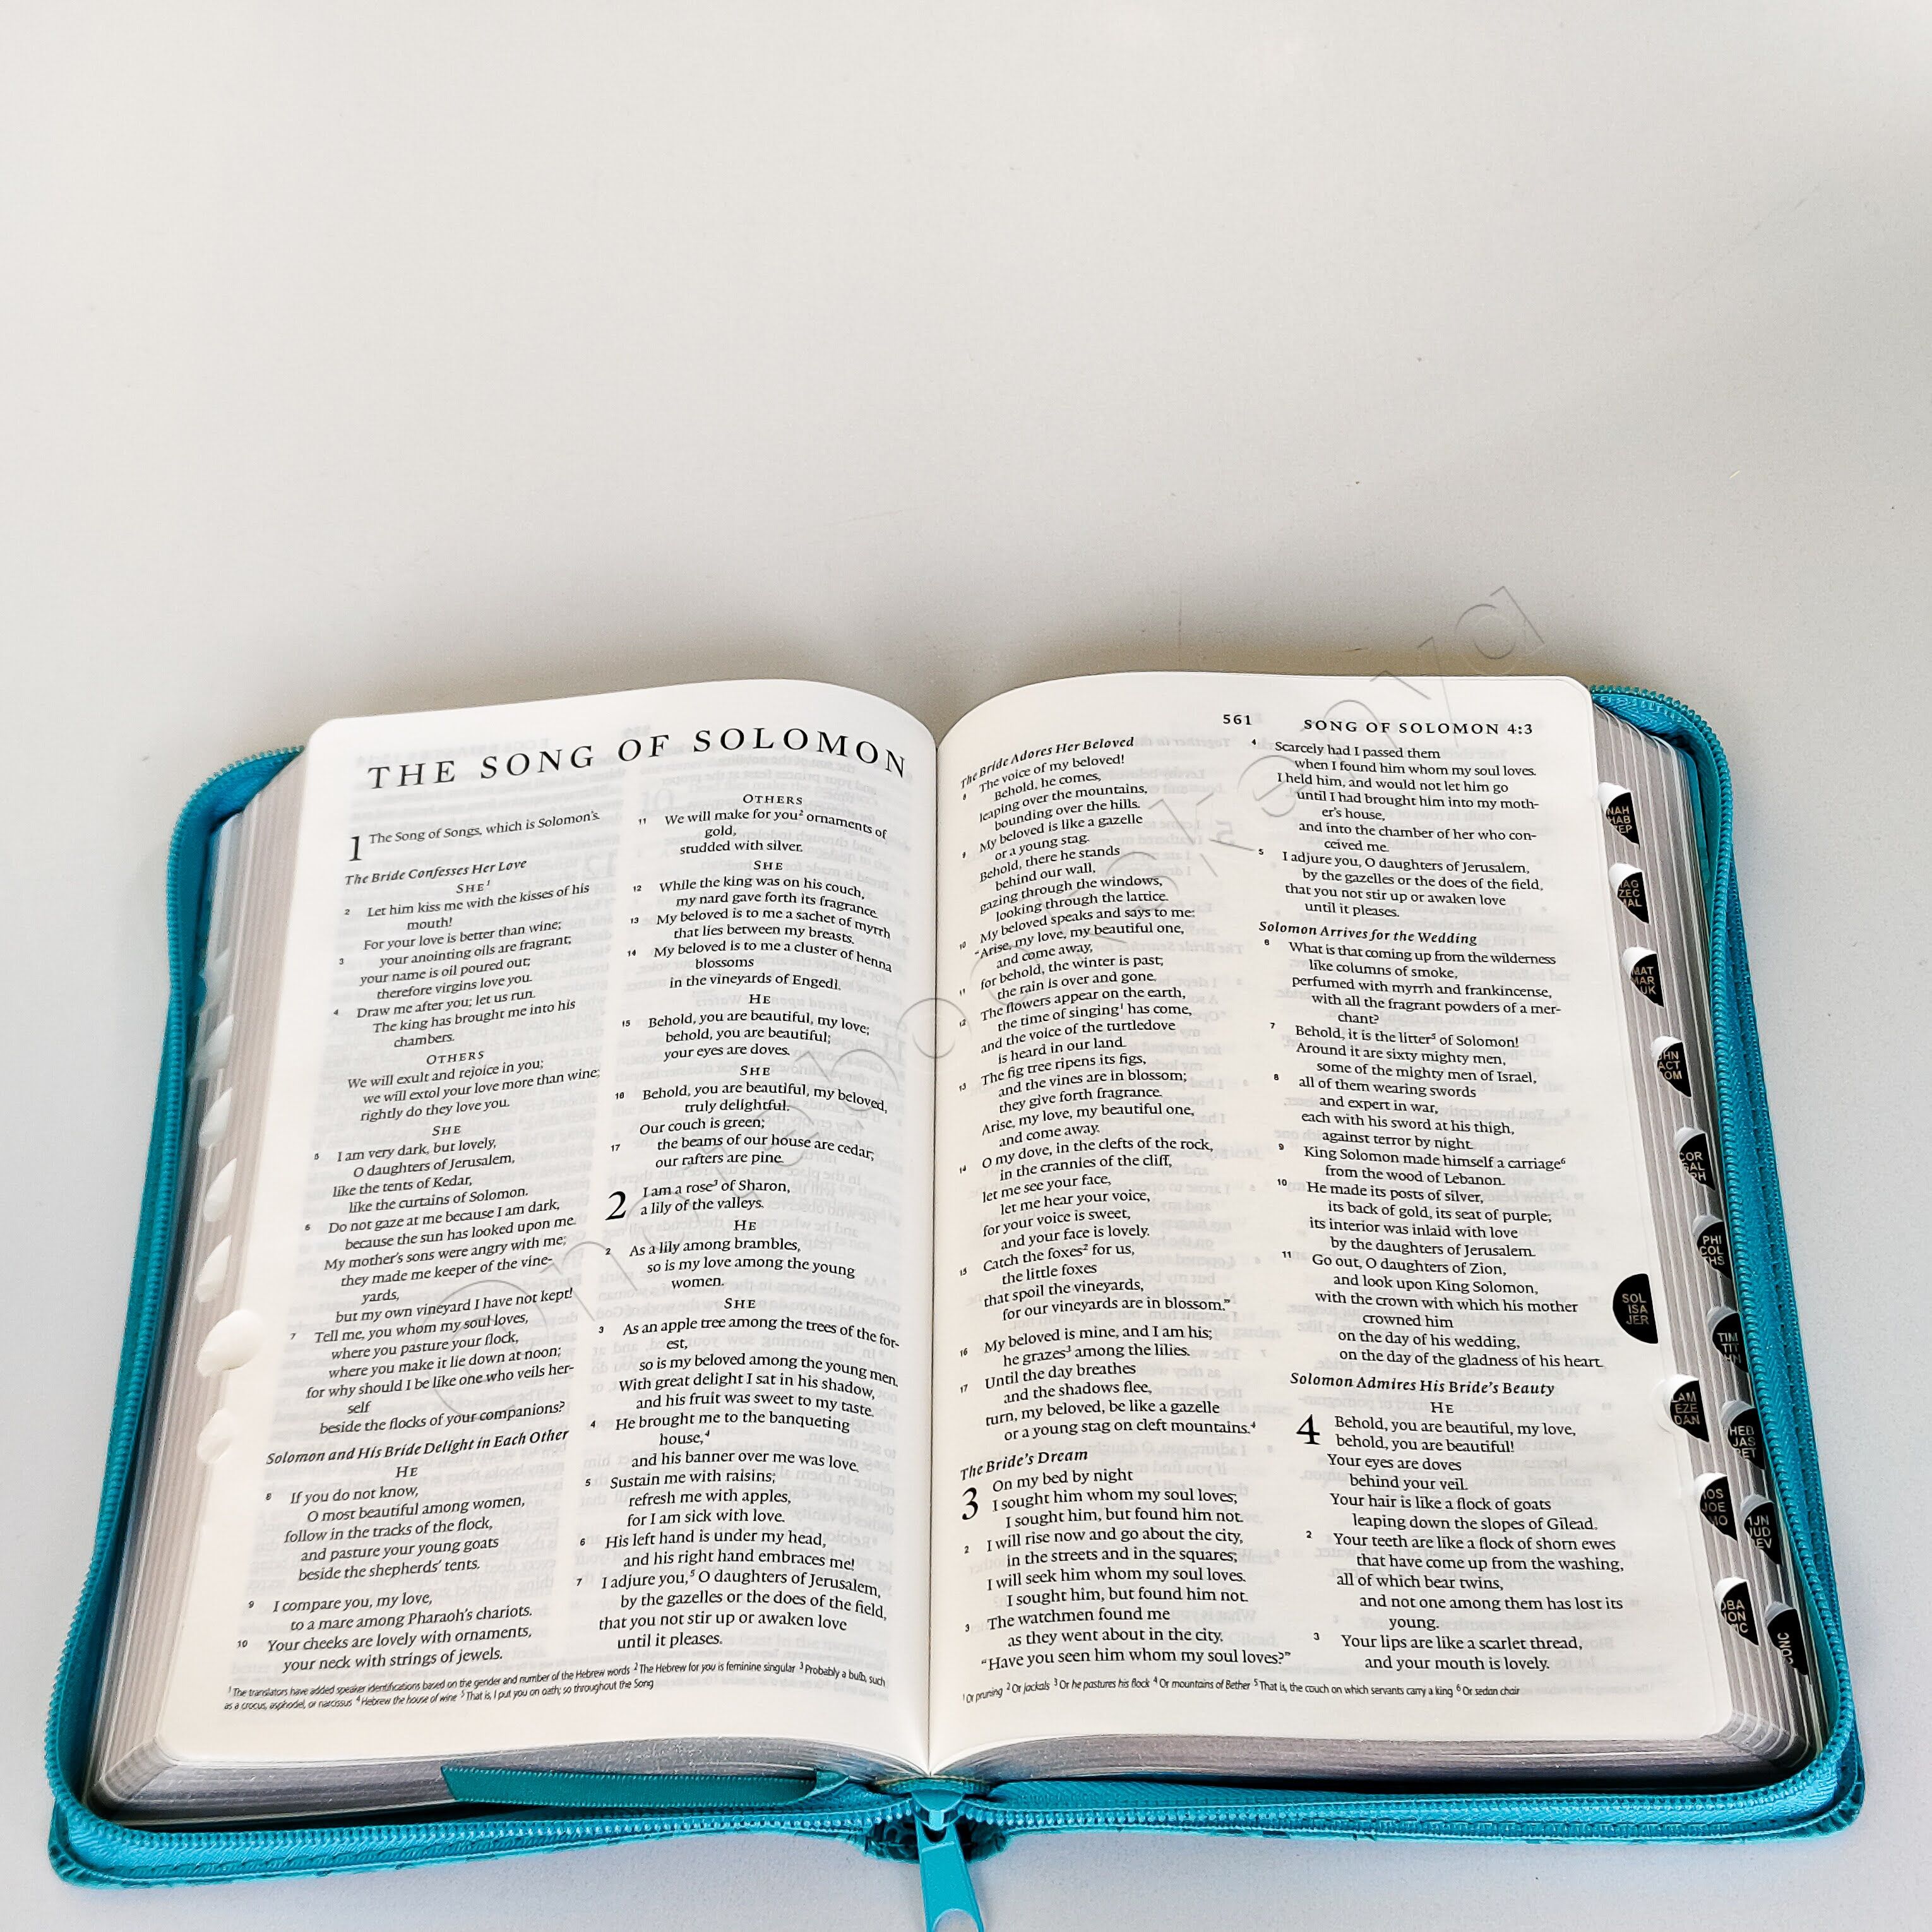 THE SONG OF SOLOMON
1 The Song of Songs, which is Solomon's.
The Bride Confesses Her Love
SHE1
2 Let him kiss me with the kisses of his
mouth!
For your love is better than wine;
3 your anointing oils are fragrant;
your name is oil poured out;
therefore virgins love you.
4 Draw me after you; let us run.
The king has brought me into his
chambers.
OTHERS
We will exult and rejoice in you;
we will extol your love more than wine;
rightly do they love you.
SHE
5 I am very dark, but lovely,
O daughters of Jerusalem,
like the tents of Kedar,
like the curtains of Solomon.
6 Do not gaze at me because I am dark,
because the sun has looked upon me.
My mother's sons were angry with me;
they made me keeper of the vine-
yards,
but my own vineyard I have not kept!
7 Tell me, you whom my soul loves,
where you pasture your flock,
where you make it lie down at noon;
for why should I be like one who veils her-
self
beside the flocks of your companions?
Solomon and His Bride Delight in Each Other
HE
8 If you do not know,
O most beautiful among women,
follow in the tracks of the flock,
and pasture your young goats
beside the shepherds' tents.
9 I compare you, my love,
to a mare among Pharaoh's chariots.
10 Your cheeks are lovely with ornaments,
your neck with strings of jewels.
OTHERS
11 We will make for you2 ornaments of
gold,
studded with silver.
SHE
12 While the king was on his couch,
my nard gave forth its fragrance.
13 My beloved is to me a sachet of myrrh
that lies between my breasts.
14 My beloved is to me a cluster of henna
blossoms
in the vineyards of Engedi.
HE
15 Behold, you are beautiful, my love;
behold, you are beautiful;
your eyes are doves.
SHE
16 Behold, you are beautiful, my beloved,
truly delightful.
Our couch is green;
17 the beams of our house are cedar;
our rafters are pine.
2 I am a rose3 of Sharon,
a lily of the valleys.
HE
2 As a lily among brambles,
so is my love among the young
women.
SHE
3 As an apple tree among the trees of the for-
est,
so is my beloved among the young men.
With great delight I sat in his shadow,
and his fruit was sweet to my taste.
4 He brought me to the banqueting
house,4
and his banner over me was love.
5 Sustain me with raisins;
refresh me with apples,
for I am sick with love.
6 His left hand is under my head,
and his right hand embraces me!
7 I adjure you,5 O daughters of Jerusalem,
by the gazelles or the does of the field,
that you not stir up or awaken love
until it pleases.
1 The translators have added speaker identifications based on the gender and number of the Hebrew words 2 The Hebrew for you is feminine singular 3 Probably a bulb, such
as a crocus, asphodel, or narcissus 4 Hebrew the house of wine 5 That is, I put you on oath; so throughout the Song
561 SONG OF SOLOMON 4:3
The Bride Adores Her Beloved
8 The voice of my beloved!
Behold, he comes,
leaping over the mountains,
bounding over the hills.
9 My beloved is like a gazelle
or a young stag.
Behold, there he stands
behind our wall,
gazing through the windows,
looking through the lattice.
10 My beloved speaks and says to me:
"Arise, my love, my beautiful one,
and come away,
11 for behold, the winter is past;
the rain is over and gone.
12 The flowers appear on the earth,
the time of singing1 has come,
and the voice of the turtledove
is heard in our land.
13 The fig tree ripens its figs,
and the vines are in blossom;
they give forth fragrance.
Arise, my love, my beautiful one,
and come away.
14 O my dove, in the clefts of the rock,
in the crannies of the cliff,
let me see your face,
let me hear your voice,
for your voice is sweet,
and your face is lovely.
15 Catch the foxes2 for us,
the little foxes
that spoil the vineyards,
for our vineyards are in blossom."
16 My beloved is mine, and I am his;
he grazes3 among the lilies.
17 Until the day breathes
and the shadows flee,
turn, my beloved, be like a gazelle
or a young stag on cleft mountains.4
The Bride's Dream
3 On my bed by night
I sought him whom my soul loves;
I sought him, but found him not.
2 I will rise now and go about the city,
in the streets and in the squares;
I will seek him whom my soul loves.
I sought him, but found him not.
3 The watchmen found me
as they went about in the city.
"Have you seen him whom my soul loves?"
4 Scarcely had I passed them
when I found him whom my soul loves.
I held him, and would not let him go
until I had brought him into my moth-
er's house,
and into the chamber of her who con-
ceived me.
5 I adjure you, O daughters of Jerusalem,
by the gazelles or the does of the field,
that you not stir up or awaken love
until it pleases.
Solomon Arrives for the Wedding
6 What is that coming up from the wilderness
like columns of smoke,
perfumed with myrrh and frankincense,
with all the fragrant powders of a mer-
chant?
7 Behold, it is the litter5 of Solomon!
Around it are sixty mighty men,
some of the mighty men of Israel,
8 all of them wearing swords
and expert in war,
each with his sword at his thigh,
against terror by night.
9 King Solomon made himself a carriage6
from the wood of Lebanon.
10 He made its posts of silver,
its back of gold, its seat of purple;
its interior was inlaid with love
by the daughters of Jerusalem.
11 Go out, O daughters of Zion,
and look upon King Solomon,
with the crown with which his mother
crowned him
on the day of his wedding,
on the day of the gladness of his heart.
Solomon Admires His Bride's Beauty
HE
4 Behold, you are beautiful, my love,
behold, you are beautiful!
Your eyes are doves
behind your veil.
Your hair is like a flock of goats
leaping down the slopes of Gilead.
2 Your teeth are like a flock of shorn ewes
that have come up from the washing,
all of which bear twins,
and not one among them has lost its
young.
3 Your lips are like a scarlet thread,
and your mouth is lovely.
1 Or pruning 2 Or jackals 3 Or he pastures his flock 4 Or mountains of Bether 5 That is, the couch on which servants carry a king 6 Or sedan chair
NAH
HAB
MAT
MAR
ACT
COR
PHI
COL
SOL
ISA
JER
TIM
TIT
LAM
EZE
DAN
HEB
JAS
JOE
1JN
JUD
CONC